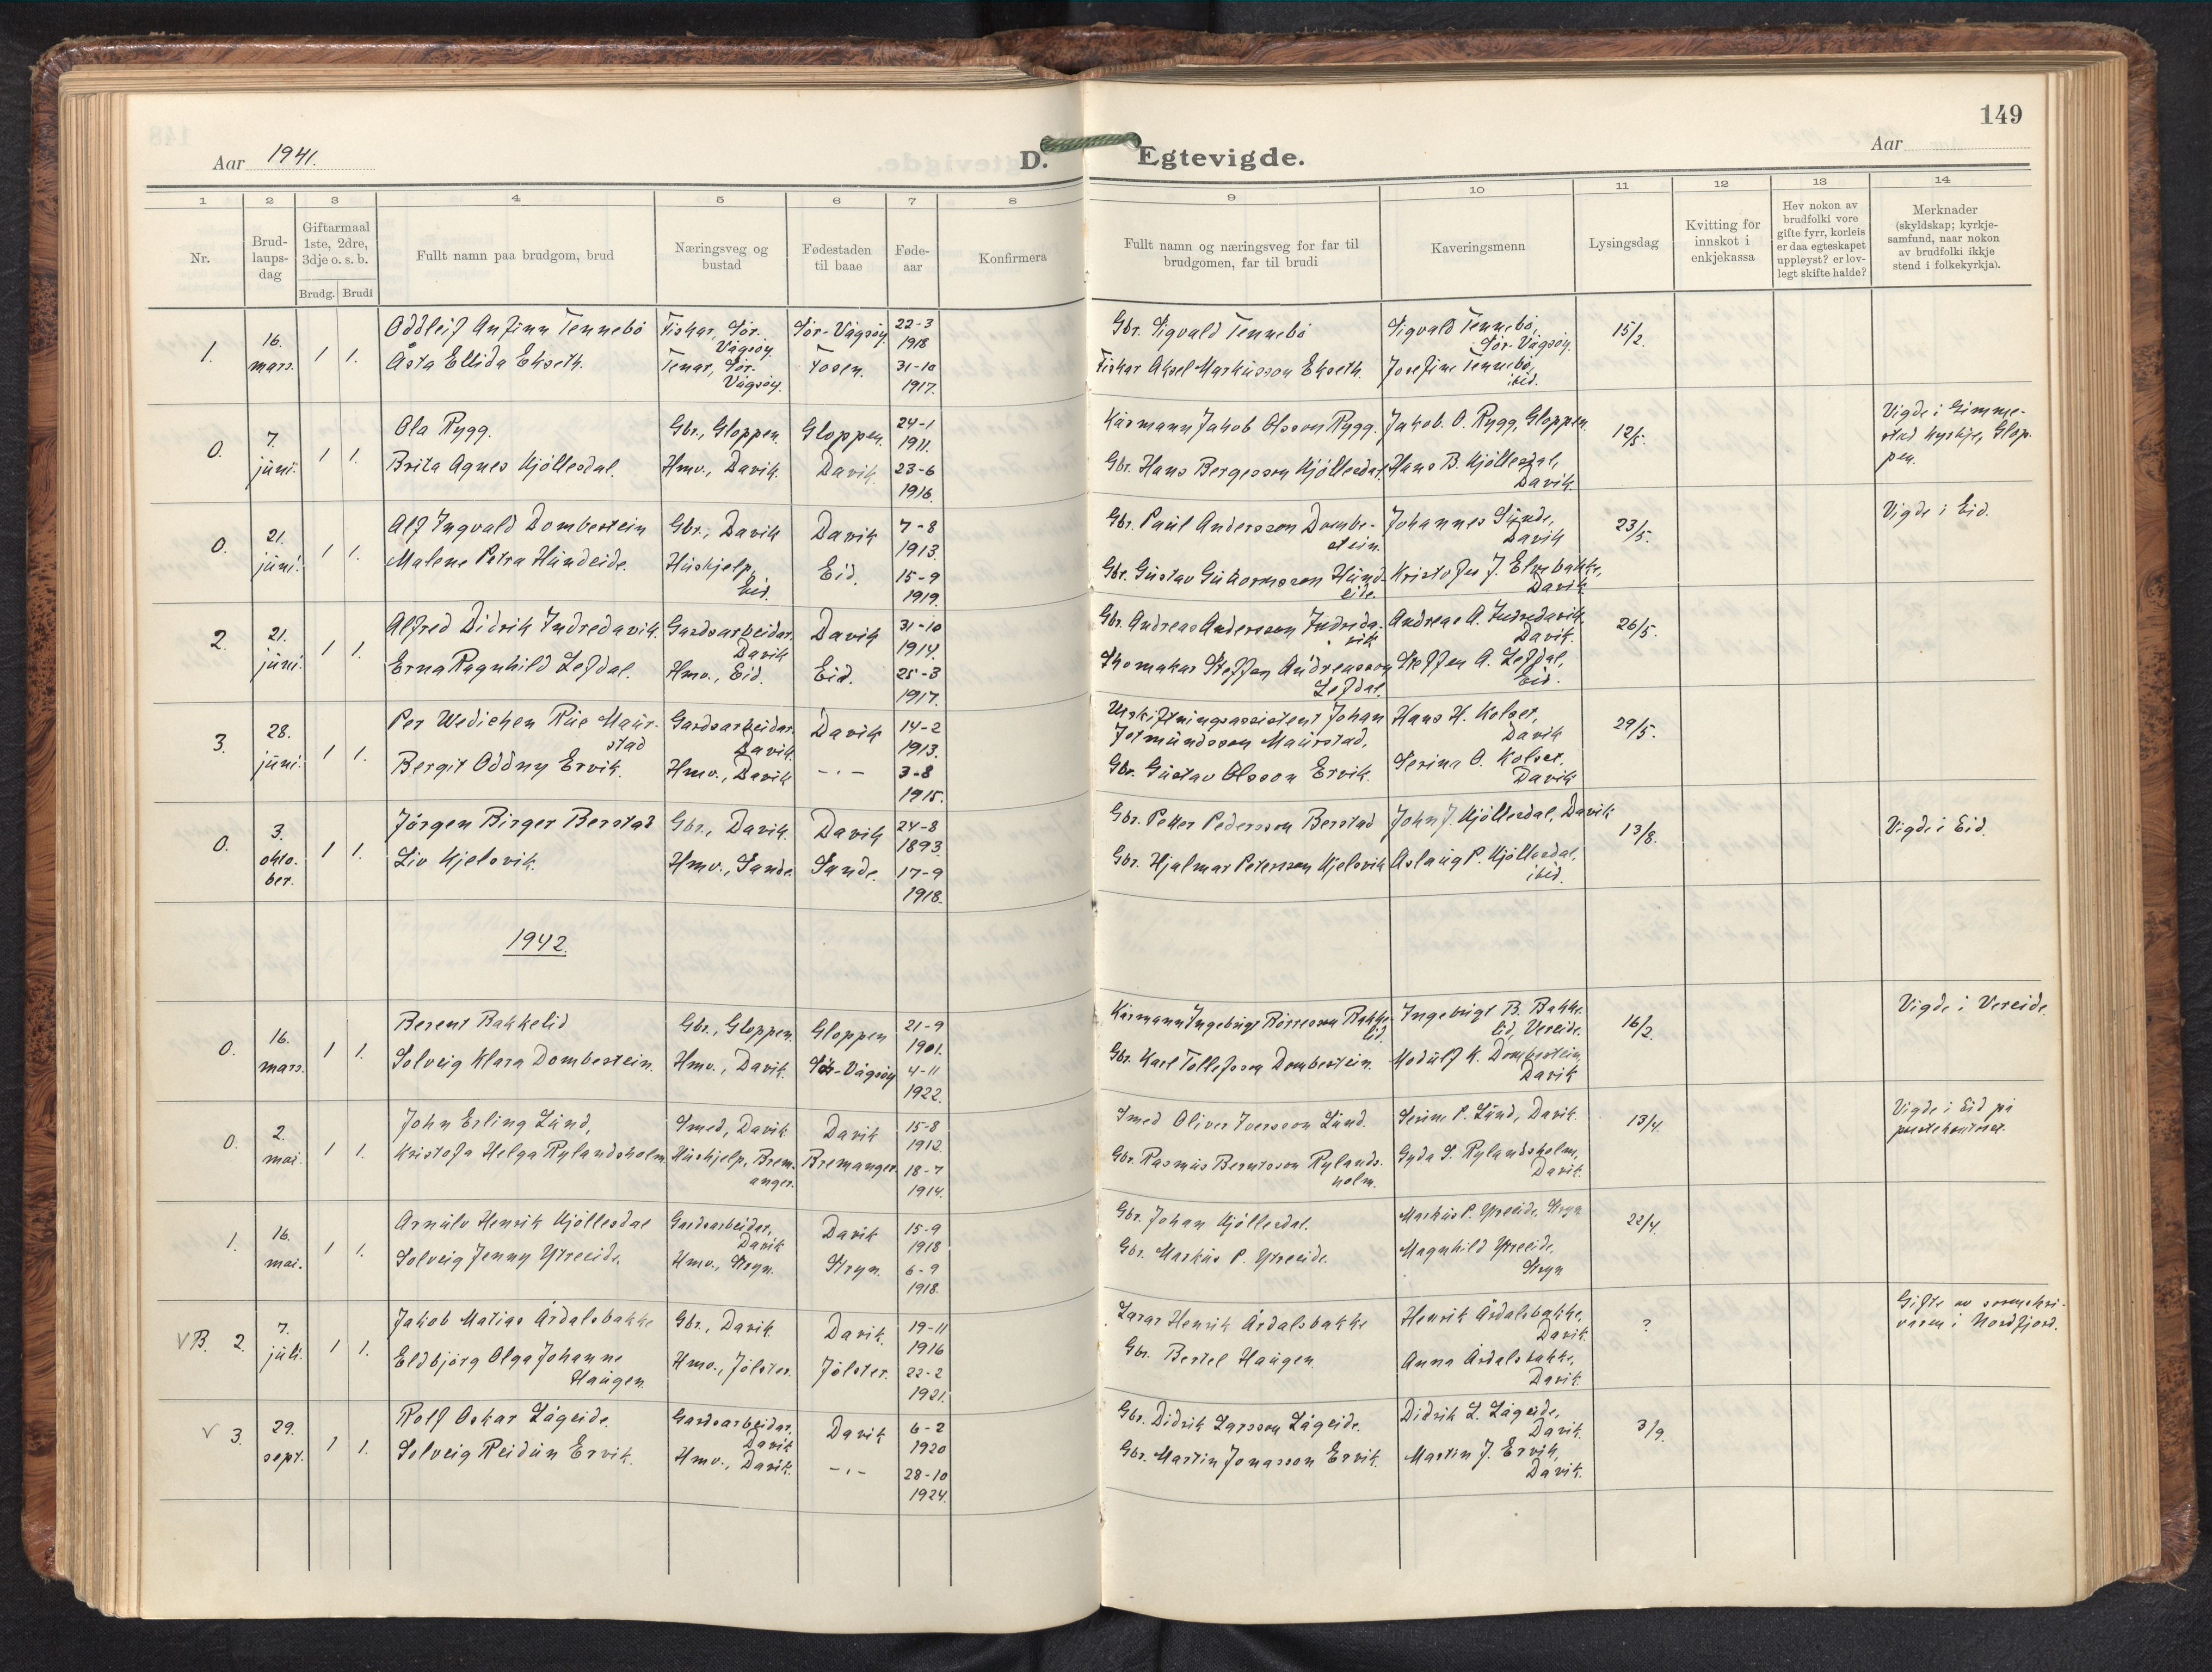 149
Aar 1941.
D. Egtevigde.
Aar
1 2 3 4 5 6 7 8 9 10 11 12 13 14
Nr.
Brud-
laups-
dag
Giftarmaal
1ste, 2dre,
3dje o. s. b.
Brudg. Brudi
Fullt namn paa brudgom, brud
Næringsveg og
bustad
Fødestaden
til baae
Føde-
aar
Konfirmera
Fullt namn og næringsveg for far til
brudgomen, far til brudi
Kaveringsmenn
Lysingsdag
Kvitting for
innskot i
enkjekassa
Hev nokon av
brudfolki vore
gifte fyrr, korleis
er daa egteskapet
uppløyst? er lov-
legt skifte halde?
Merknader
(skyldskap; kyrkje-
samfund, naar nokon
av brudfolki ikkje
stend i folkekyrkja).
1. 16. mars. 1 1.
Oddleif Anfinn Tennebö Fiskar, Sör-Vågsöy. Sör-Vågsöy. 22-3 1918
Åsta Ellida Ekseth. Tenar, Sör-Vågsöy. Fosen. 31-10 1917.
Gbr. Sigvald Tennebö Sigvald Tennebö, Sör-Vågsöy. 15/2.
Fiskar Aksel Markusson Ekseth. Josefine Tennebö, ibid.
0. 7. juni. 1 1.
Ola Rygg. Gbr., Gloppen. Gloppen. 24-1 1911.
Brita Agnes Kjöllesdal. Hmv., Davik. Davik. 23-6 1916.
Kårmann Jakob Olsson Rygg. Jakob. O. Rygg, Gloppen. 12/5.
Gbr. Hans Bergesson Kjöllesdal. Hans B. Kjöllesdal, Davik.
Vigde i Gimme-
stad kyrkje, Glop-
pen.
0. 21. juni. 1 1.
Alf Ingvald Dombestein Gbr., Davik Davik 7-8 1913.
Malene Petra Hundeide. Hushjelp, Eid. Eid. 15-9 1919.
Gbr. Paul Andersson Dombe-
stein. Johannes Sunde, Davik 23/5.
Gbr. Gustav Guttormsson Hund-
eide. Kristofer J. Elvebakke, Davik.
Vigde i Eid.
2. 21. juni. 1 1.
Alfred Didrik Indredavik. Gardsarbeidar, Davik Davik 31-10 1914.
Erna Ragnhild Lefdal. Hmv., Eid. Eid. 25-3 1917.
Gbr. Andreas Andersson Indreda-
vik Andreas A. Indredavik, Davik. 26/5.
Skomakar Steffen Andreasson
Lefdal. Steffen A. Lefdal, Eid.
3. 28. juni. 1 1.
Per Wedichen Rüe Maur-
stad Gardsarbeidar, Davik. Davik 14-2 1913.
Bergit Oddny Ervik. Hmv., Davik -"- 3-8 1915.
Utskiftningsassistent Johan
Jetmundsson Maurstad, Hans H. Kolset, Davik 29/5.
Gbr. Gustav Olsson Ervik. Serina O. Kolset, Davik
0. 3. okto-
ber. 1 1.
Jörgen Birger Berstad Gbr., Davik. Davik 24-8 1893.
Liv Kjelsvik. Hmv., Sande. Sande. 17-9 1918.
Gbr. Petter Pedersson Berstad John J. Kjöllesdal, Davik 13/8.
Gbr. Hjalmar Petersson Kjelsvik Aslaug P. Kjöllesdal, ibid.
Vigde i Eid.
1942.
0. 16. mars. 1 1.
Berent Bakkelid Gbr., Gloppen. Gloppen 21-9 1901.
Solveig Klara Dombestein. Hmv., Davik. Sör-Vågsöy 4-11 1922.
Kårmann Ingebrigt Börresson Bakke-
lid. Ingebrigt B. Bakke-
lid, Vereide. 16/2
Gbr. Karl Tollefsson Dombestein. Modulf K. Dombestein, Davik
Vigde i Vereide.
0. 2. mai. 1 1.
John Erling Lund, Smed, Davik Davik 15-8 1912.
Kristofa Helga Rylandsholm. Hushjelp, Brem-
anger. Bremanger. 18-7 1914.
Smed Oliver Iversson Lund. P. Lund, Davik. 13/4.
Gbr. Rasmus Berntsson Rylands-
holm. Gyda S. Rylandsholm, Davik.
Vigde i Eid på
prestekontoret.
1. 16. mai. 1 1.
Arnulv Henrik Kjöllesdal Gardsarbeidar, Davik Davik 15-9 1918
Solveig Jenny Ytreeide. Hmv., Stryn. Stryn. 6-9 1918.
Gbr. Johan Kjöllesdal. Markus P. Ytreeide, Stryn 22/4.
Gbr. Markus P. Ytreeide. Magnhild Ytreeide, Stryn
VB. 2. 7. juli. 1 1.
Jakob Matias Årdalsbakke Gbr., Davik. Davik. 19-11 1916
Eldbjörg Olga Johanne
Haugen. Hmv., Jölster. Jölster. 22-2 1921.
Lærar Henrik Årdalsbakke Henrik Årdalsbakke, Davik. ?
Gbr. Bertel Haugen. Anna Årdalsbakke, Davik.
Gifte av sorenskri-
varen i Nordfjord.
V 3. 29. sept. 1 1.
Rolf Oskar Lågeide. Gardsarbeidar, Davik Davik 6-2 1920
Solveig Reidun Ervik. Hmv., Davik. -"- 28-10 1924.
Gbr. Didrik Larsson Lågeide. Didrik L. Lågeide, Davik. 3/9.
Gbr. Martin Jonasson Ervik. Martin J. Ervik, Davik.